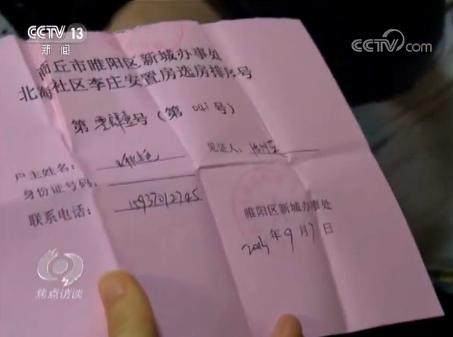 CCTV 13
新闻
CCTV.com
商丘市睢阳区新城办事处
北海社区李庄安置房选房排序号
第 号(第 041 号)
户主姓名:
见证人:
身份证号码:
联系电话: 15937012745
睢阳区新城办事处
年 9 月 7 日
焦点访谈